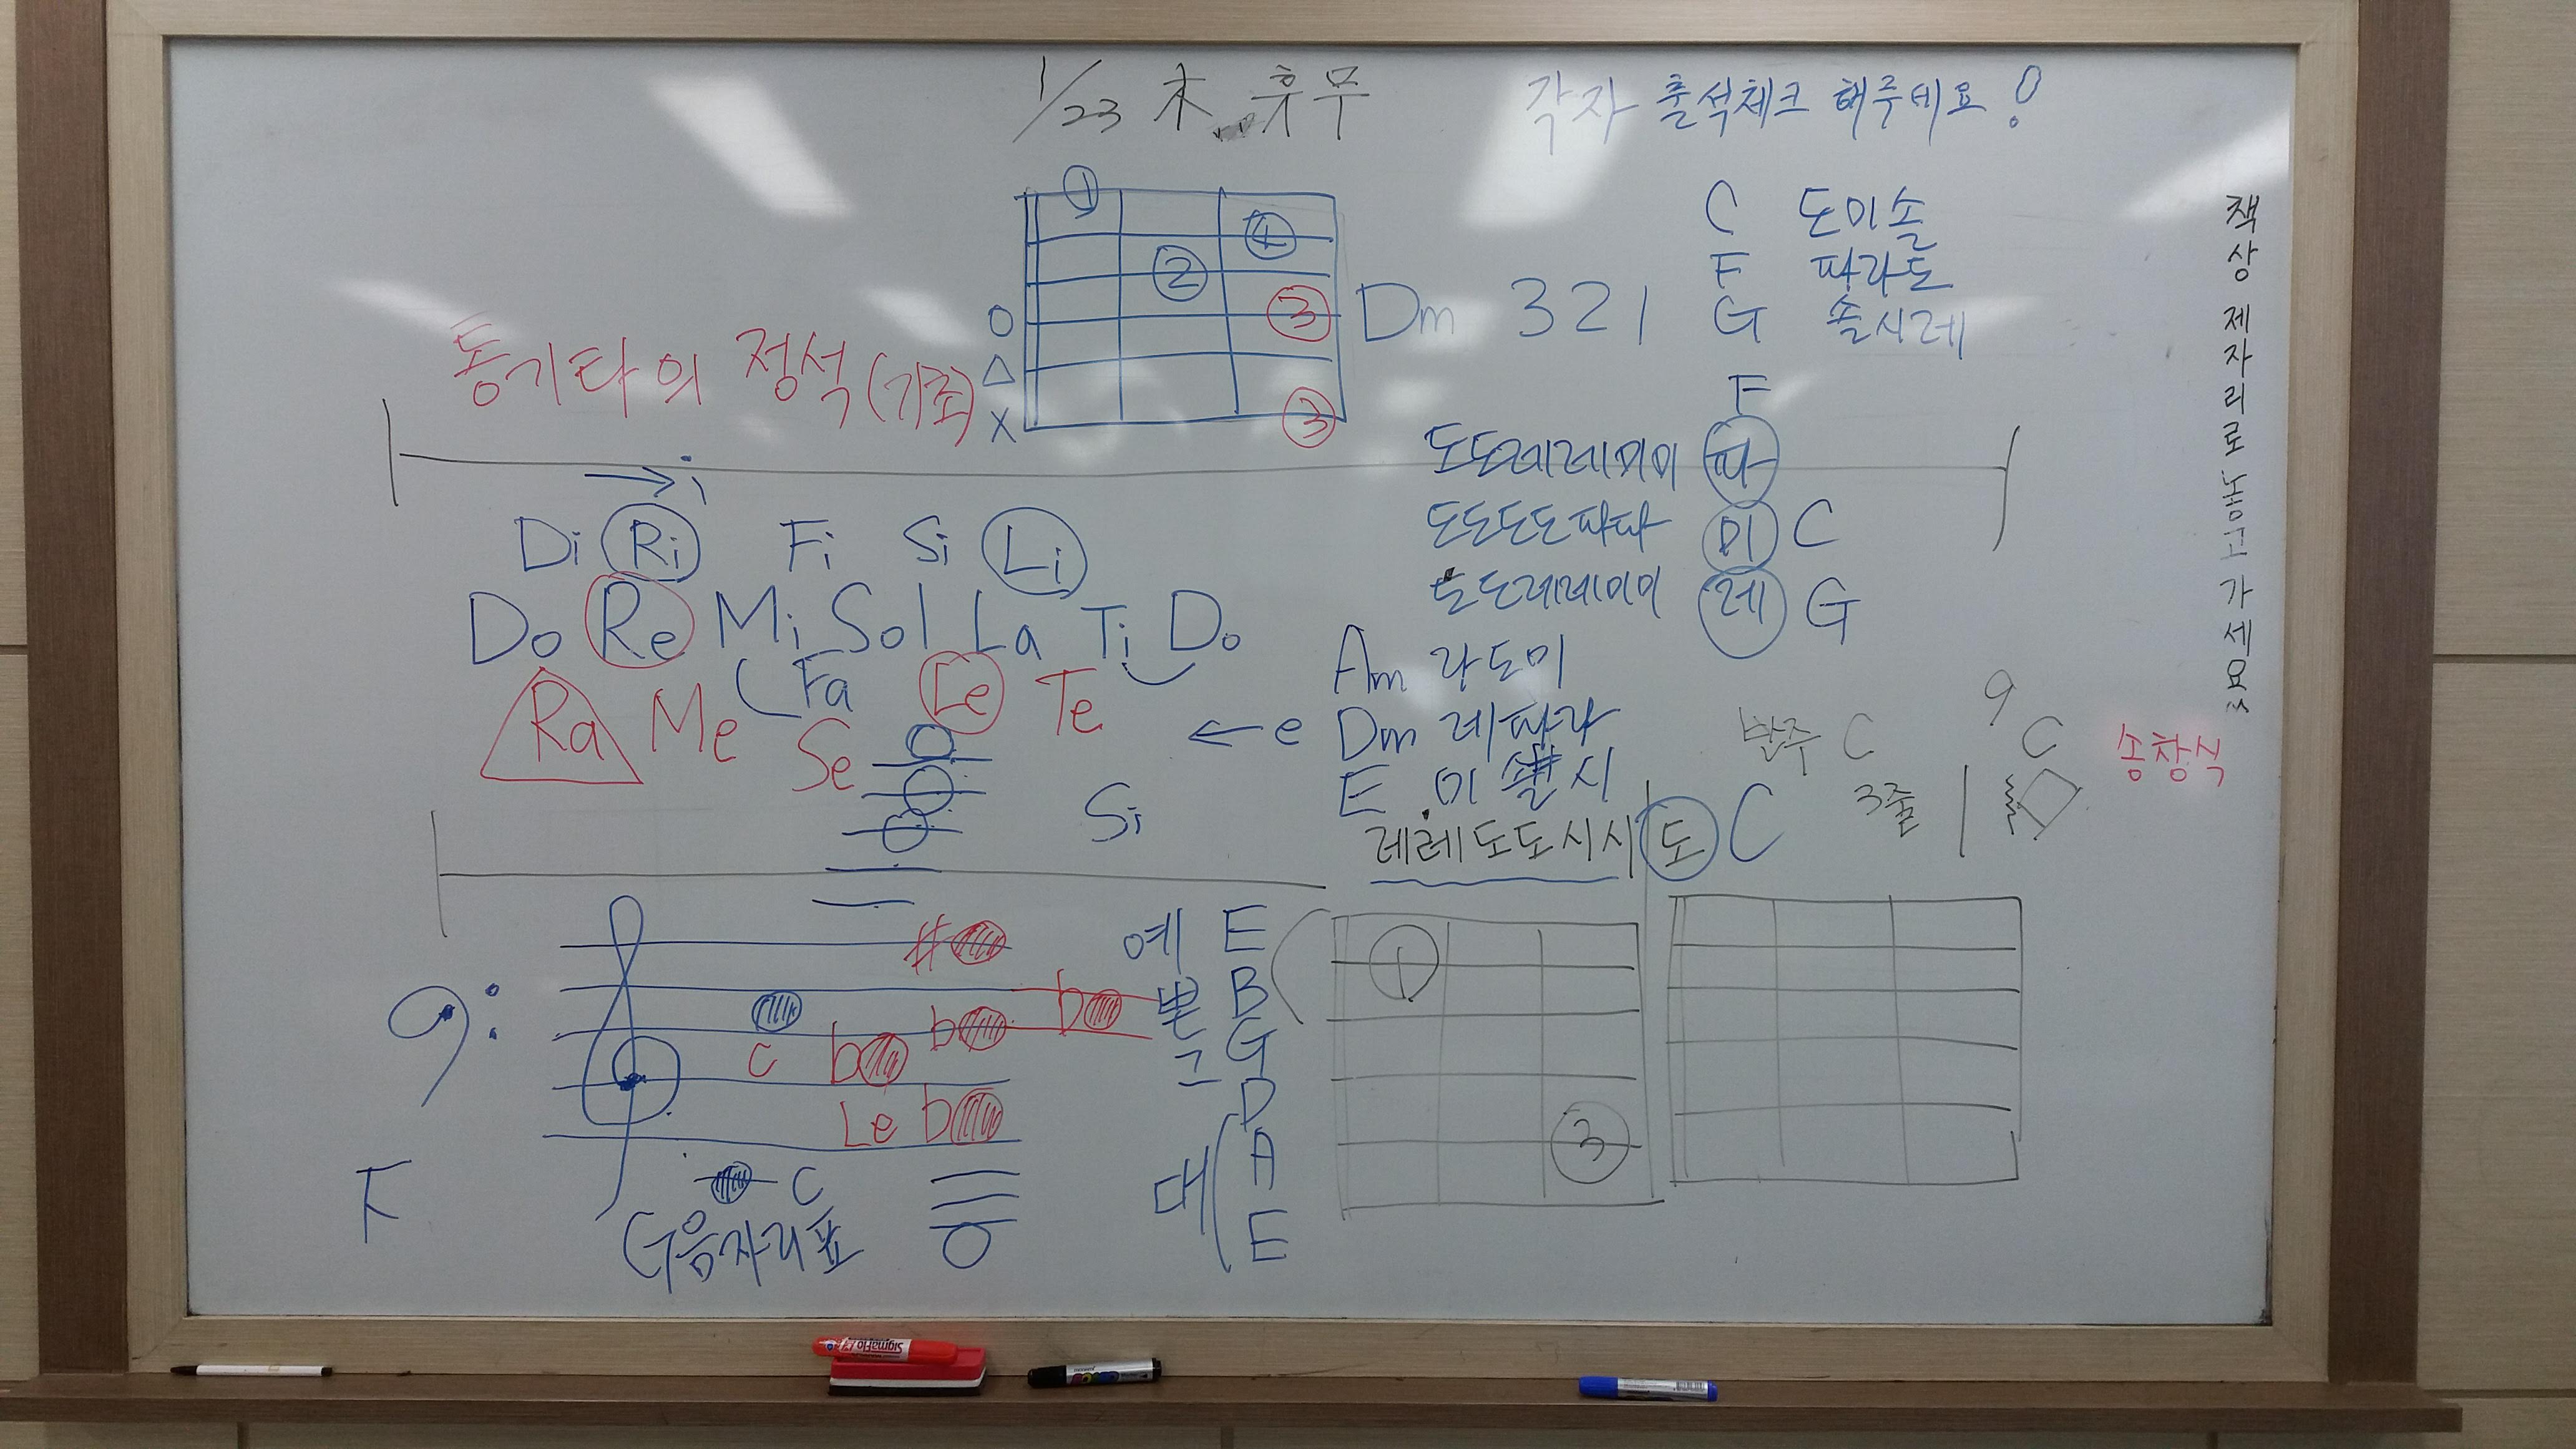 1/23 木 휴무
각자 출석체크 해주세요!
책상 제자리로 놓고 가세요
①
④
②
③
③
○
△
X
Dm 321
C 도미솔
F 파라도
G 솔시레
통기타의 정석(기초)
F
도도레레미미 파
도도도도파파 미 C
도도레레미미 레 G
→ i
Di Ri Fi Si Li
Do Re Mi Sol La Ti Do
Fa
Ra Me Se Le Te
← e
Si
Am 라도미
Dm 레파라
E 미 솔# 시
레레도도시시 도 C
반주 C
3줄
9
C
송창식
예 E
쁜 B
그 G
D
대 A
E
# 
b b b
c
Le b
C
G음자리표
F
①
③
SigmaFlo